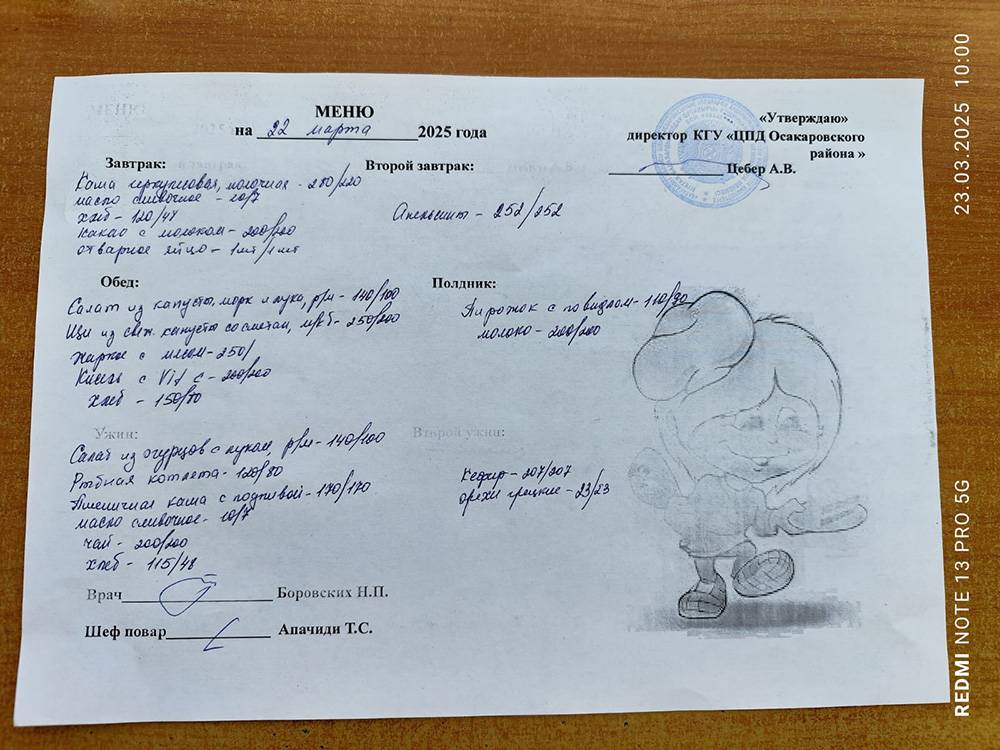 МЕНЮ
на 22 марта 2025 года
«Утверждаю»
директор КГУ «ЦПД Осакаровского
района »
Цебер А.В.
Завтрак:
Каша геркулесовая, молочная - 280/220
масло сливочное - 10/7
хлеб - 120/48
какао с молоком - 200/200
отварное яйцо - 1шт/1шт
Второй завтрак:
Апельсин - 252/252
Обед:
Салат из капусты, морк и лука, р/м - 140/100
Щи из свеж. капусты со сметан, м/к б - 250/200
Жаркое с мясом - 250/
Кисель с Vit С - 200/200
хлеб - 150/80
Полдник:
Пирожок с повидлом - 110/90
молоко - 200/200
Ужин:
Салат из огурцов с луком, р/м - 140/100
Рыбная котлета - 120/80
Пшеничная каша с подливой - 170/170
масло сливочное - 10/7
чай - 200/200
хлеб - 115/48
Второй ужин:
Кефир - 207/207
орехи грецкие - 23/23
Врач Боровских Н.П.
Шеф повар Апачиди Т.С.
23.03.2025 10:00
REDMI NOTE 13 PRO 5G